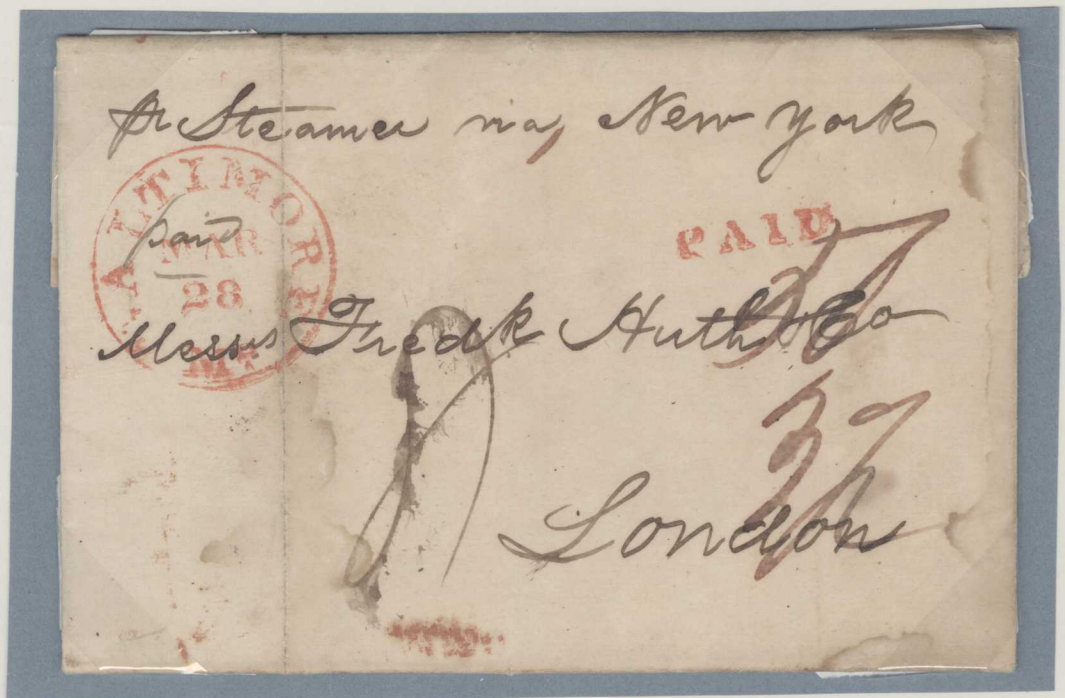 pr Steamer via New York
BALTIMORE Md.
paid
MAR
28
PAID
37
Messrs Fredk Huth & Co
37
London